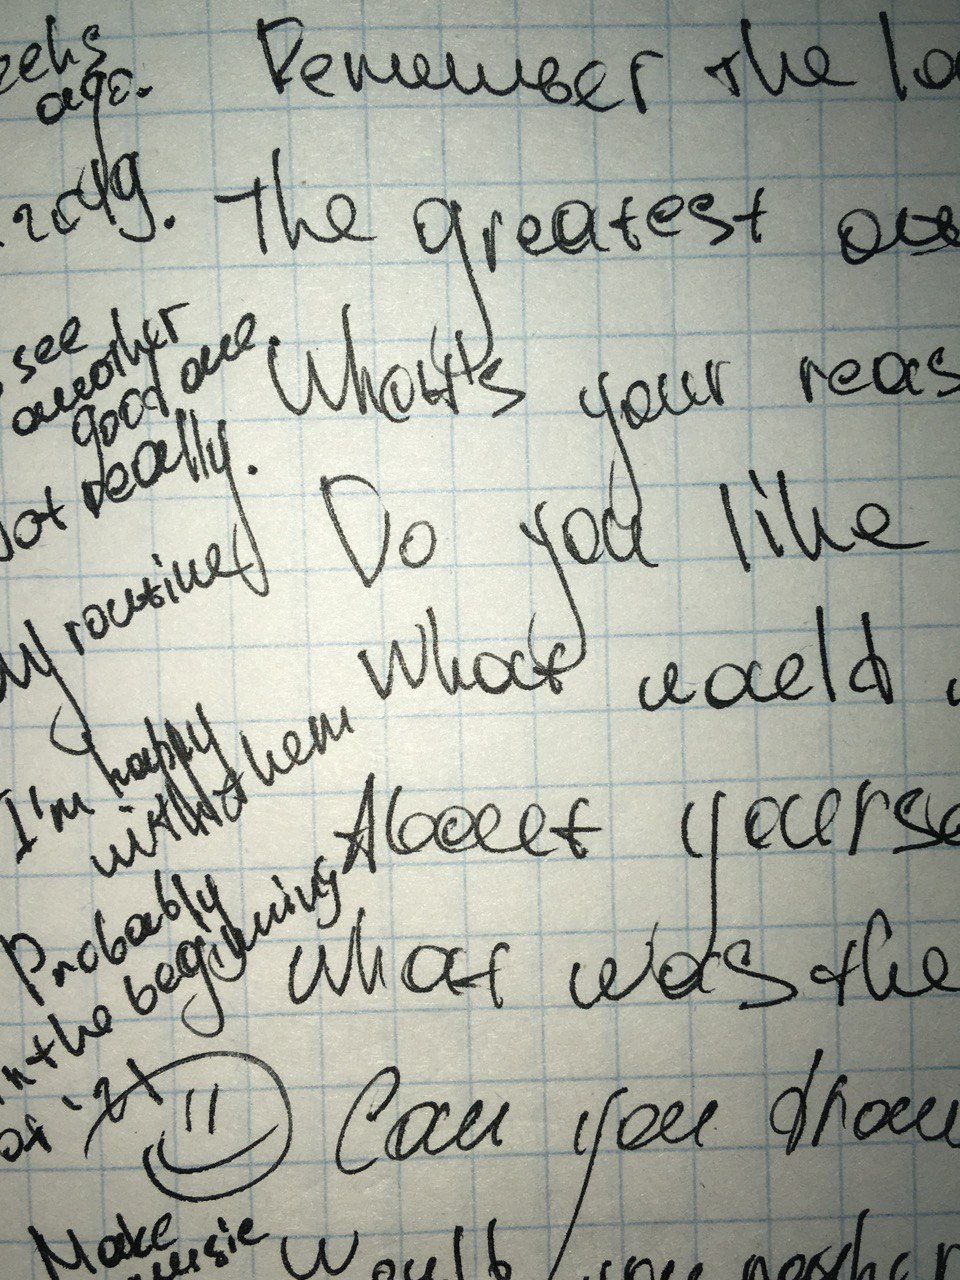 Remember the
ago.
The greatest
see
another
good one.
What's your reas
Not really.
Do you like
My routine
What would
I'm happy
with them
About yourse
Probably
in the beginning
of '21
What was the
Can you draw
Make
music
Would you rather